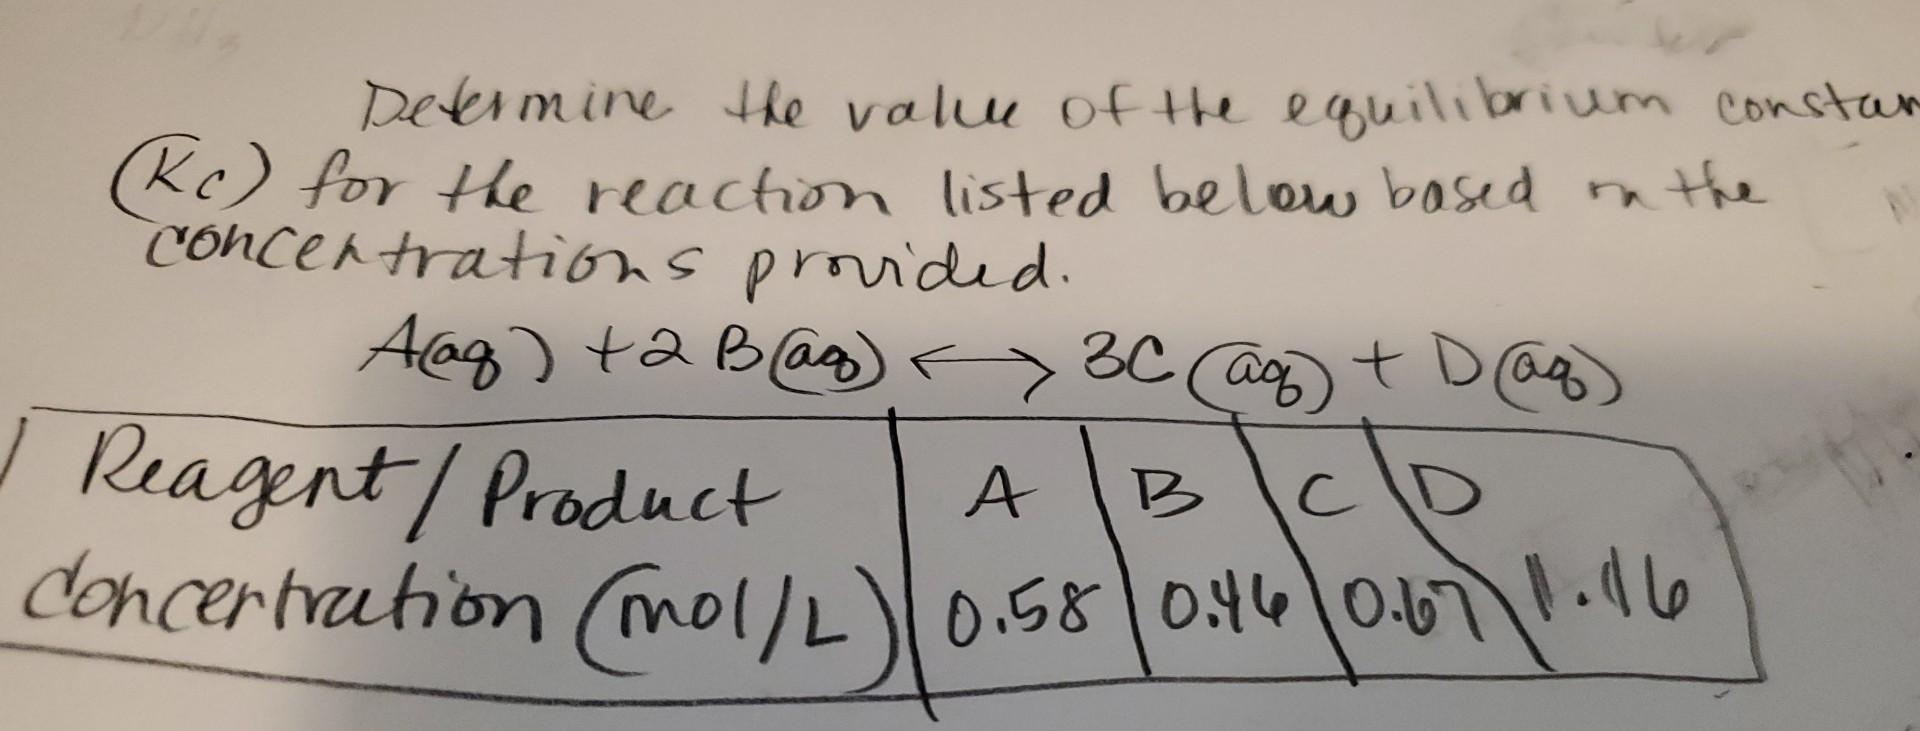 Determine the value of the equilibrium constan
(Kc) for the reaction listed below based on the
concentrations provided.
A(aq) + 2 B(aq) ⟷ 3C(aq) + D(aq)
Reagent / Product | A | B | C | D
concentration (mol/L) | 0.58 | 0.46 | 0.67 | 1.16